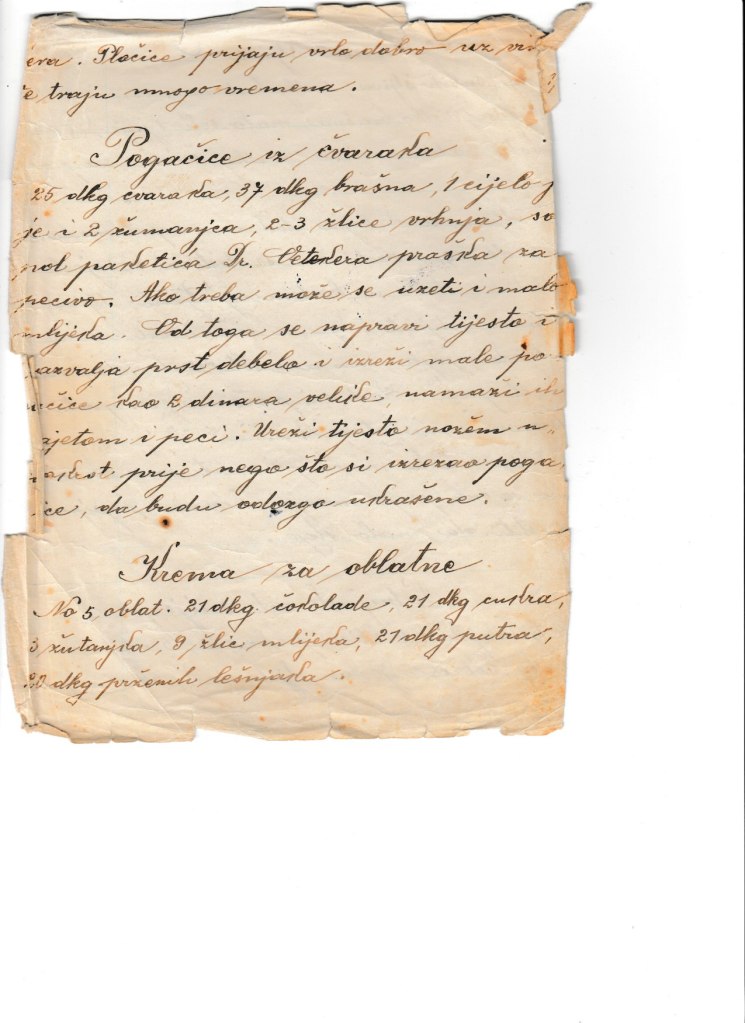 era. Pločice prijaju vrlo dobro uz vi
e traju mnogo vremena.
Pogačice iz čvaraka
25 dkg čvaraka, 37 dkg brašna, 1 cijelo j
je i 2 žumanjca, 2-3 žlice vrhnja, so
pol paketića Dr. Oetekera praška za
pecivo. Ako treba može se uzeti i malo
mlijeka. Od toga se napravi tijesto i
azvalja prst debelo i izreži male po
čice kao 2 dinara velike, namaži ih
jetom i peci. Ureži tijesto nožem u
akrst prije nego što si izrezao poga
ice, da budu odozgo ukrašene.
Krema za oblatne
No 5 oblat. 21 dkg čokolade, 21 dkg cukra,
3 žutanjka, 9 žlic mlijeka, 21 dkg putra,
20 dkg prženih lešnjaka.